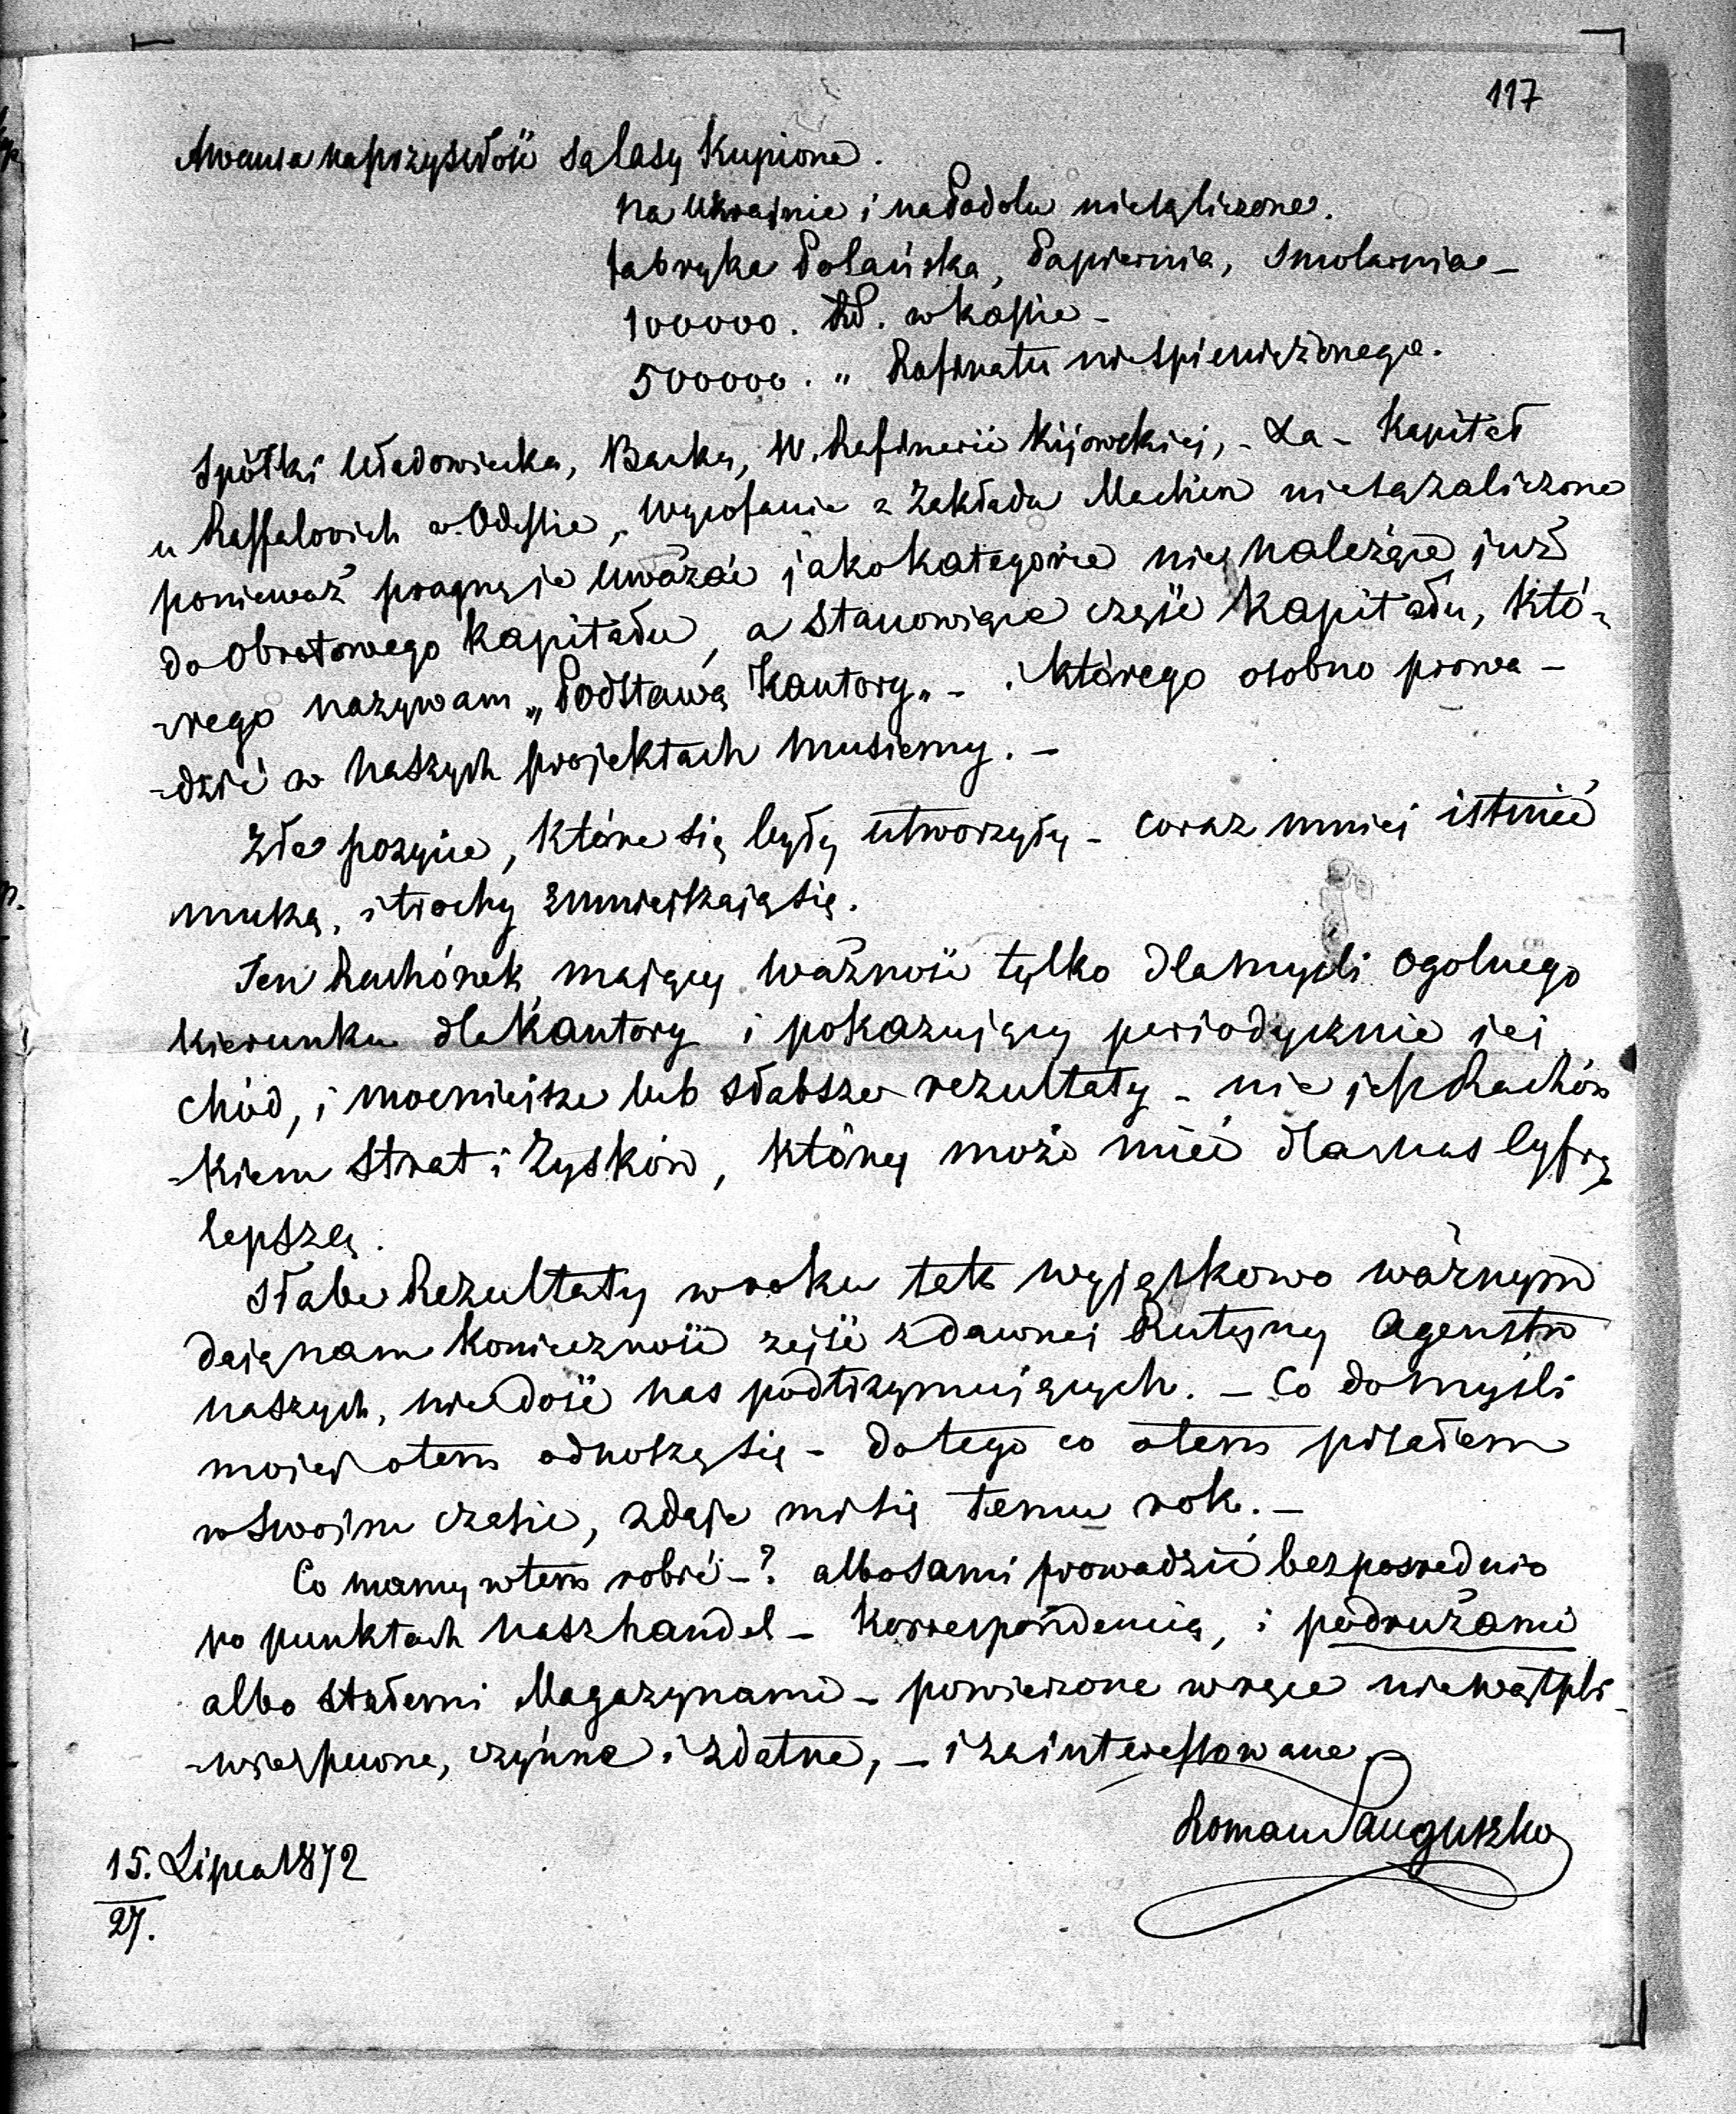 117
Awansa naprzyszłość są lasy kupione.
na Ukrajnie i na Podolu niesą liczone.
fabryka Polańska, Papiernia, Smolarnia –
100000. Rd. w kassie –
500000. " Rafinatu niespieniężonego.
Spółki Uładowiecka, Banku, W. Rafinerii Kijowskiej, – La – Kapitał
u Raffalovich w Odessie, Wycofanie z Zakładu Machin niesą zaliczone
ponieważ pragnę je uważać jako kategorie nie należące już
do Obrotowego Kapitału, a stanowiące część Kapitału, któ-
-rego nazywam „Podstawą Kantory" – którego osobno prowa-
-dzić w naszych projektach musiemy. –
Złe pozycie, które się były utworzyły – coraz mniej istnieć
muszą, i trochy zmniejszają się.
Ten Rachónek mający ważność tylko dla myśli ogolnego
kierunku dla Kantory i pokazujący periodycznie jej
chód, i mocniejsze lub słabsze rezultaty – nie jest Rachón
-kiem Strat i Zysków, który może mieć dla nas Cyfrę
lepszą.
Słabe Rezultaty w roku tak wyjątkowo ważnym
dają nam konieczność zejść z dawnej Rutyny Agenstw
naszych, nie dość nas podtrzymujących. – Co do myśli
mojej o tem odnoszę się – do tego co o tem pisałem
w swoim czasie, zdaje mi się temu rok. –
Co mamy w tem robić –? albo sami prowadzić bezposrednio
po punktach nasz handel – Korrespondencią, i podrużami
albo stałemi Magazynami – powierzone w ręce niewątpli-
-wie pewne, czynne i zdatne, – i zainteressowane.
Roman Sanguszko
15. Lipca 1872
27.